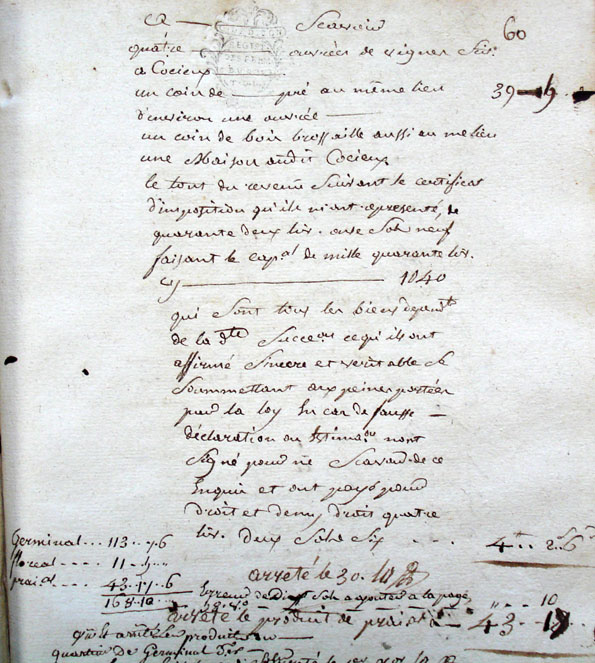 Scavoir 60
quatre ouvrées de vignes
a Cocieux
un coin de pré au même lieu 39
d'environ une ouvrée
un coin de bois brossaille aussi au me lieu
une Maison audit Cocieux
le tout du revenu Suivant le certificat
d'imposition qu'ils m'ont representé, de
quarante deux liv. onse Sols neuf
faisant le cap.al de mille quarante liv.
cy 1040
qui Sont tous les biens depend.ts
de la d.te Succe.on ce qu'ils ont
affirmé Sincere et veritable Se
Soummettant aux peines portées
par la loy En cas de fausse
déclaration ou Estima.on n'ont
Signé pour ne Scavoir de ce
Enquis et ont payé pour
droit et demy droit quatre
liv. deux Sols Six 4 2 6
Germinal 113 6
floreal 11
prai.al 43 17 6
168
arreté le 30
Erreur de Dix Sols a ajouter a la page 10
arreté le produit de prairial 43
quartier de Germinal